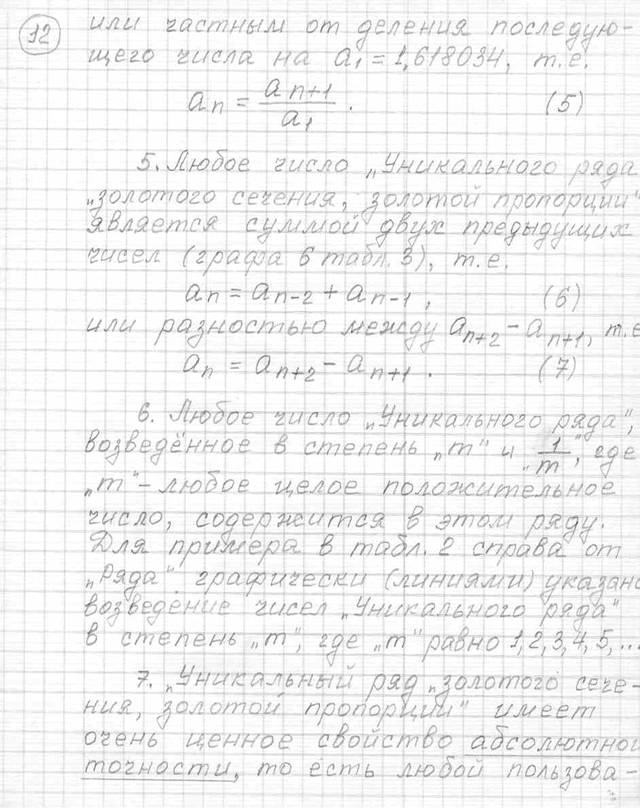 12
или частным от деления последую-
щего числа на a₁ = 1,618034, т.е.
aₙ = aₙ₊₁ / a₁ . (5)
5. Любое число „Уникального ряда
„золотого сечения, золотой пропорции"
является суммой двух предыдущих
чисел (графа 6 табл. 3), т.е.
aₙ = aₙ₋₂ + aₙ₋₁ , (6)
или разностью между aₙ₊₂ – aₙ₊₁, т.е
aₙ = aₙ₊₂ – aₙ₊₁ . (7)
6. Любое число „Уникального ряда",
возведённое в степень „m" и „1/m", где
„m" – любое целое положительное
число, содержится в этом ряду.
Для примера в табл. 2 справа от
„Ряда" графически (линиями) указано
возведение чисел „Уникального ряда"
в степень „m", где „m" равно 1, 2, 3, 4, 5, ...
7. „Уникальный ряд „золотого сече-
ния, золотой пропорции" имеет
очень ценное свойство абсолютной
точности, то есть любой пользова-